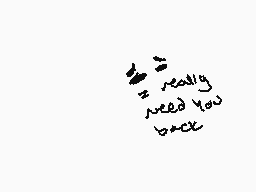 I really
need you
back